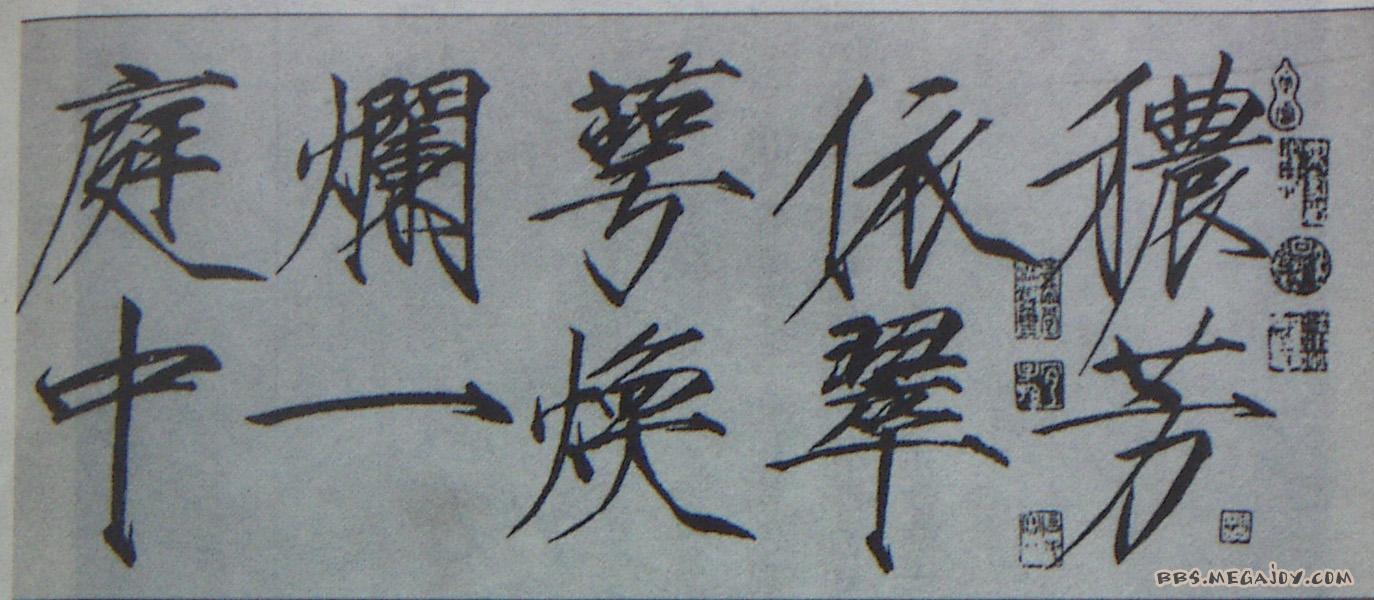 穠芳
依翠
萼煥
爛一
庭中
BBS.MEGAJOY.COM